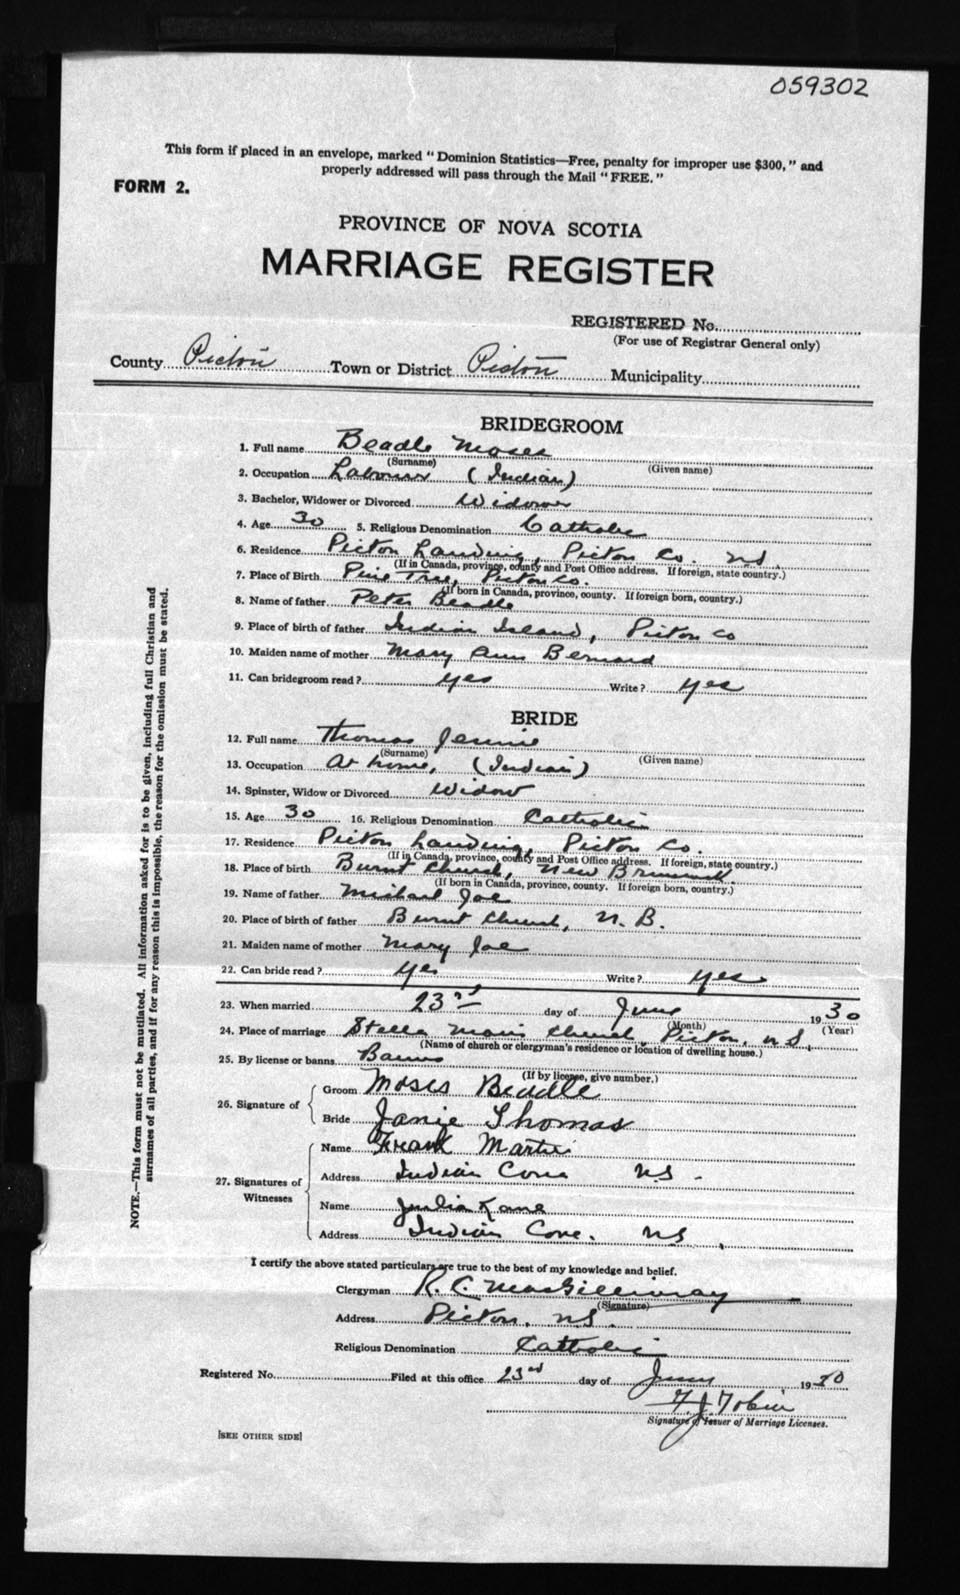 059302
This form if placed in an envelope, marked "Dominion Statistics—Free, penalty for improper use $300," and
properly addressed will pass through the Mail "FREE."
FORM 2.
PROVINCE OF NOVA SCOTIA
MARRIAGE REGISTER
REGISTERED No.
(For use of Registrar General only)
County Pictou Town or District Pictou Municipality
BRIDEGROOM
1. Full name Beadle Moses
(Surname) (Given name)
2. Occupation Labourer (Indian)
3. Bachelor, Widower or Divorced Widower
4. Age 30 5. Religious Denomination Catholic
6. Residence Pictou Landing, Pictou Co. NS.
(If in Canada, province, county and Post Office address. If foreign, state country.)
7. Place of Birth Pine Tree, Pictou Co.
(If born in Canada, province, county. If foreign born, country.)
8. Name of father Peter Beadle
9. Place of birth of father Indian Island, Pictou Co
10. Maiden name of mother Mary Ann Bernard
11. Can bridegroom read? yes Write? yes
BRIDE
12. Full name Thomas Jennie
(Surname) (Given name)
13. Occupation At home, (Indian)
14. Spinster, Widow or Divorced Widow
15. Age 30 16. Religious Denomination Catholic
17. Residence Pictou Landing, Pictou Co.
(If in Canada, province, county and Post Office address. If foreign, state country.)
18. Place of birth Burnt Church, New Brunswick.
(If born in Canada, province, county. If foreign born, country.)
19. Name of father Michael Joe
20. Place of birth of father Burnt Church, N. B.
21. Maiden name of mother Mary Joe
22. Can bride read? yes Write? yes
23. When married 23rd day of June 1930
(Month) (Year)
24. Place of marriage Stella Maris Church, Pictou, N.S.
(Name of church or clergyman's residence or location of dwelling house.)
25. By license or banns Banns
(If by license, give number.)
26. Signature of Groom Moses Beadle
Bride Janie Thomas
27. Signatures of Witnesses Name Frank Martin
Address Indian Cove NS.
Name Julia Kane
Address Indian Cove. NS.
I certify the above stated particulars are true to the best of my knowledge and belief.
Clergyman R. C. MacGillivray
(Signature)
Address Pictou, NS.
Religious Denomination Catholic
Registered No. Filed at this office 23rd day of June 1930
F J Tobin
Signature of Issuer of Marriage Licenses.
[SEE OTHER SIDE]
NOTE.—This form must not be mutilated. All information asked for is to be given, including full Christian and
surnames of all parties, and if for any reason this is impossible, the reason for the omission must be stated.